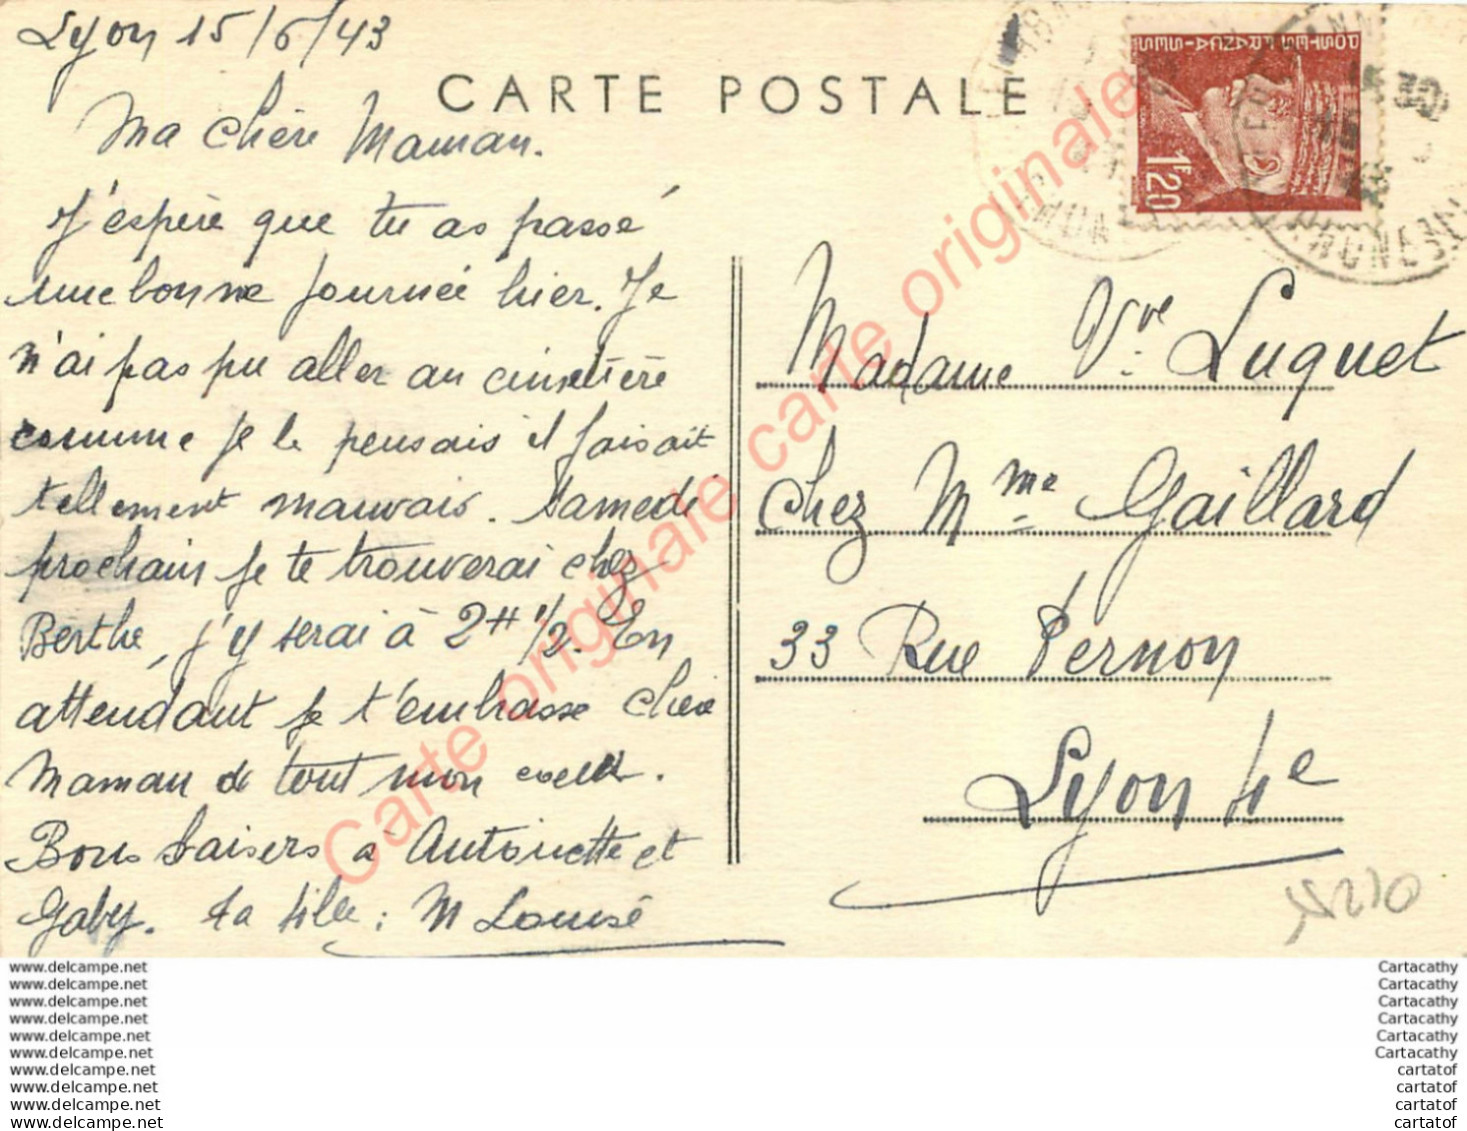 Lyon 15/6/43
CARTE POSTALE
Ma chère Maman.
J'espère que tu as passé
une bonne journée hier. Je
n'ai pas pu aller au cimetière
comme je le pensais il faisait
tellement mauvais. Samedi
prochain je te trouverai chez
Berthe, j'y serai à 2H 1/2. En
attendant je t'embrasse chère
Maman de tout mon coeur.
Bons baisers à Antoinette et
Gaby. ta fille : M Louise
POSTES FRANÇAISES
1F20
Madame Vve Luquet
chez Mme Gaillard
33 Rue Pernon
Lyon 4e
Carte originale carte originale carte originale
www.delcampe.net
www.delcampe.net
www.delcampe.net
www.delcampe.net
www.delcampe.net
www.delcampe.net
www.delcampe.net
www.delcampe.net
www.delcampe.net
www.delcampe.net
Cartacathy
Cartacathy
Cartacathy
Cartacathy
Cartacathy
Cartacathy
cartatof
cartatof
cartatof
cartatof